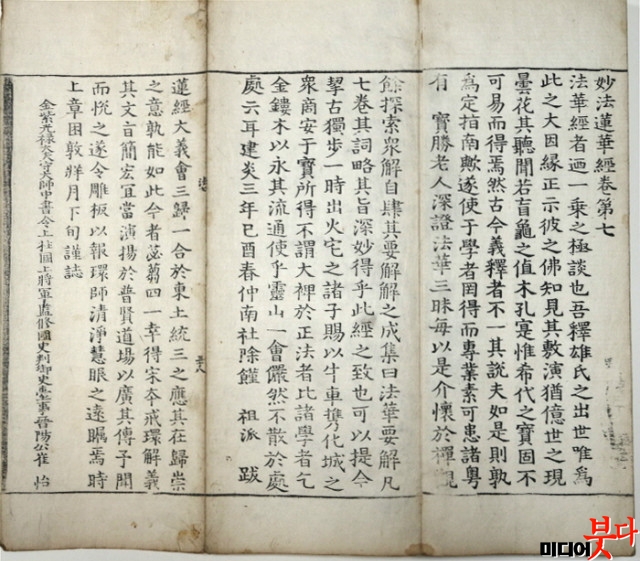 妙法蓮華經卷第七
法華經者迺一乗之極談也吾釋雄氏之出世唯為
此之大因縁正示彼之佛知見其敷演猶億世之現
曇花其聽聞若盲龜之值木孔寔惟希代之寶固不
可易而得焉然古今義釋者不一其說夫如是則孰
為定指南歟遂使于學者罔得而專業素可患諸粤
有 寶勝老人深證法華三昧每以是介懷於禪
餘探索衆解自肆其要解解之成集曰法華要解凡
七卷其詞略其旨深妙得乎此經之致也可以提今
挈古獨步一時出火宅之諸子賜以牛車攜化城之
衆商安于寶所得不謂大裨於正法者比諸學者乞
金鏤木以永其流通使乎靈山一會儼然不散於處
處云耳建炎三年己酉春仲南社除饉 祖派 跋
蓮經大義會三歸一合於東土統三之應其在歸崇
之意孰能如此今者苾蒭四一幸得宋夲戒環解義
其文言簡宏宜當演揚於普賢道場以廣其傳予聞
而悅之遂令雕板以報環師清淨慧眼之遠矚焉時
上章困敦牂月下旬謹誌
金紫光祿大夫守大師中書令上柱國上將軍監修國史判御史臺事晉陽公崔 怡
미디어붓다